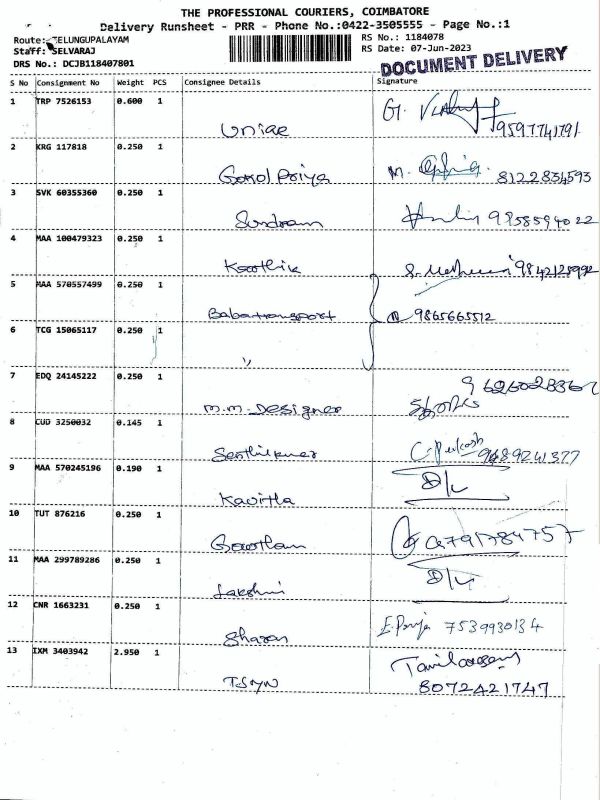 THE PROFESSIONAL COURIERS, COIMBATORE
Delivery Runsheet - PRR - Phone No.:0422-3505555 - Page No.:1
Route: TELUNGUPALAYAM RS No.: 1184078
Staff: SELVARAJ RS Date: 07-Jun-2023
DRS No.: DCJB118407801 DOCUMENT DELIVERY
S No Consignment No Weight PCS Consignee Details Signature
1 TRP 7526153 0.600 1
9597741791
2 KRG 117818 0.250 1
Gokol Priya M. 8122834593
3 SVK 60355360 0.250 1
Sundram 9858594022
4 MAA 100479323 0.250 1
Karthik
5 MAA 570557499 0.250 1
Babatransport 9865665512
6 TCG 15065117 0.250 1
,,
7 EDQ 24145222 0.250 1
M.M. Designer
8 CUD 3250032 0.145 1
Senthilkumar 9689241377
9 MAA 570245196 0.190 1
Kavitha D/L
10 TUT 876216 0.250 1
Gowtham
11 MAA 299789286 0.250 1
Lakshmi D/L
12 CNR 1663231 0.250 1
Sharan 7539930134
13 IXM 3403942 2.950 1
Tamilarasan
8072421747